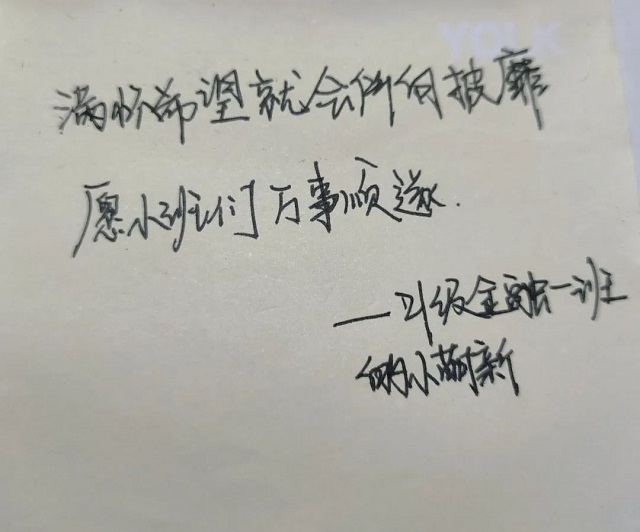 YOLK
满怀希望就会所向披靡
愿小班们万事顺遂.
——21级金融一班
的小萌新